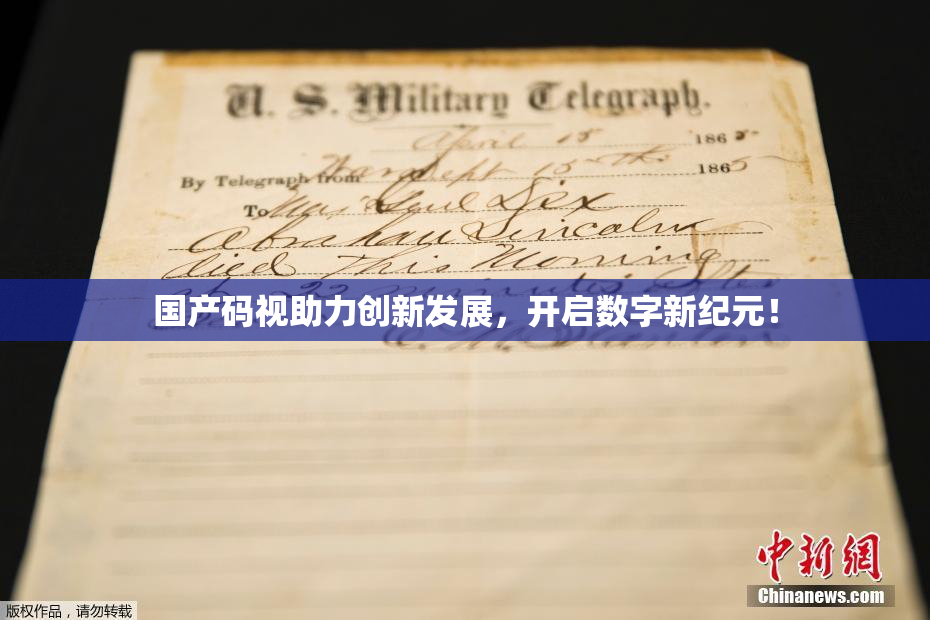 U. S. Military Telegraph.
April 15 1865
By Telegraph from War Dept 15th 1865
To Maj Genl Dix
Abraham Lincoln
died This Morning
at 22 minutes after
国产码视助力创新发展，开启数字新纪元！
E. M. Stanton
中新網
Chinanews.com
版权作品，请勿转载